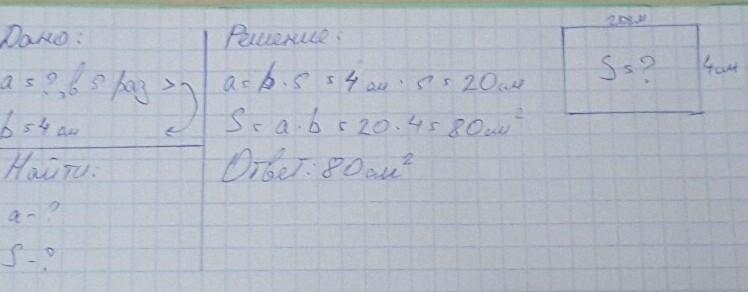 Дано:
a = ?, в 5 раз >
b = 4 см
Найти:
a - ?
S - ?
Решение:
a = b · 5 = 4 см · 5 = 20 см
S = a · b = 20 · 4 = 80 см²
Ответ: 80 см²
20см
S = ?
4 см